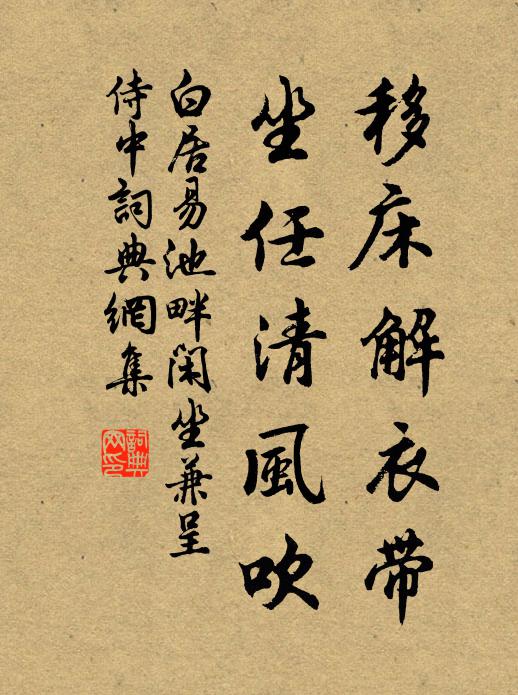 移床解衣带
坐任清風吹
白居易池畔閑坐兼呈
侍中詞典網集
詞典网印